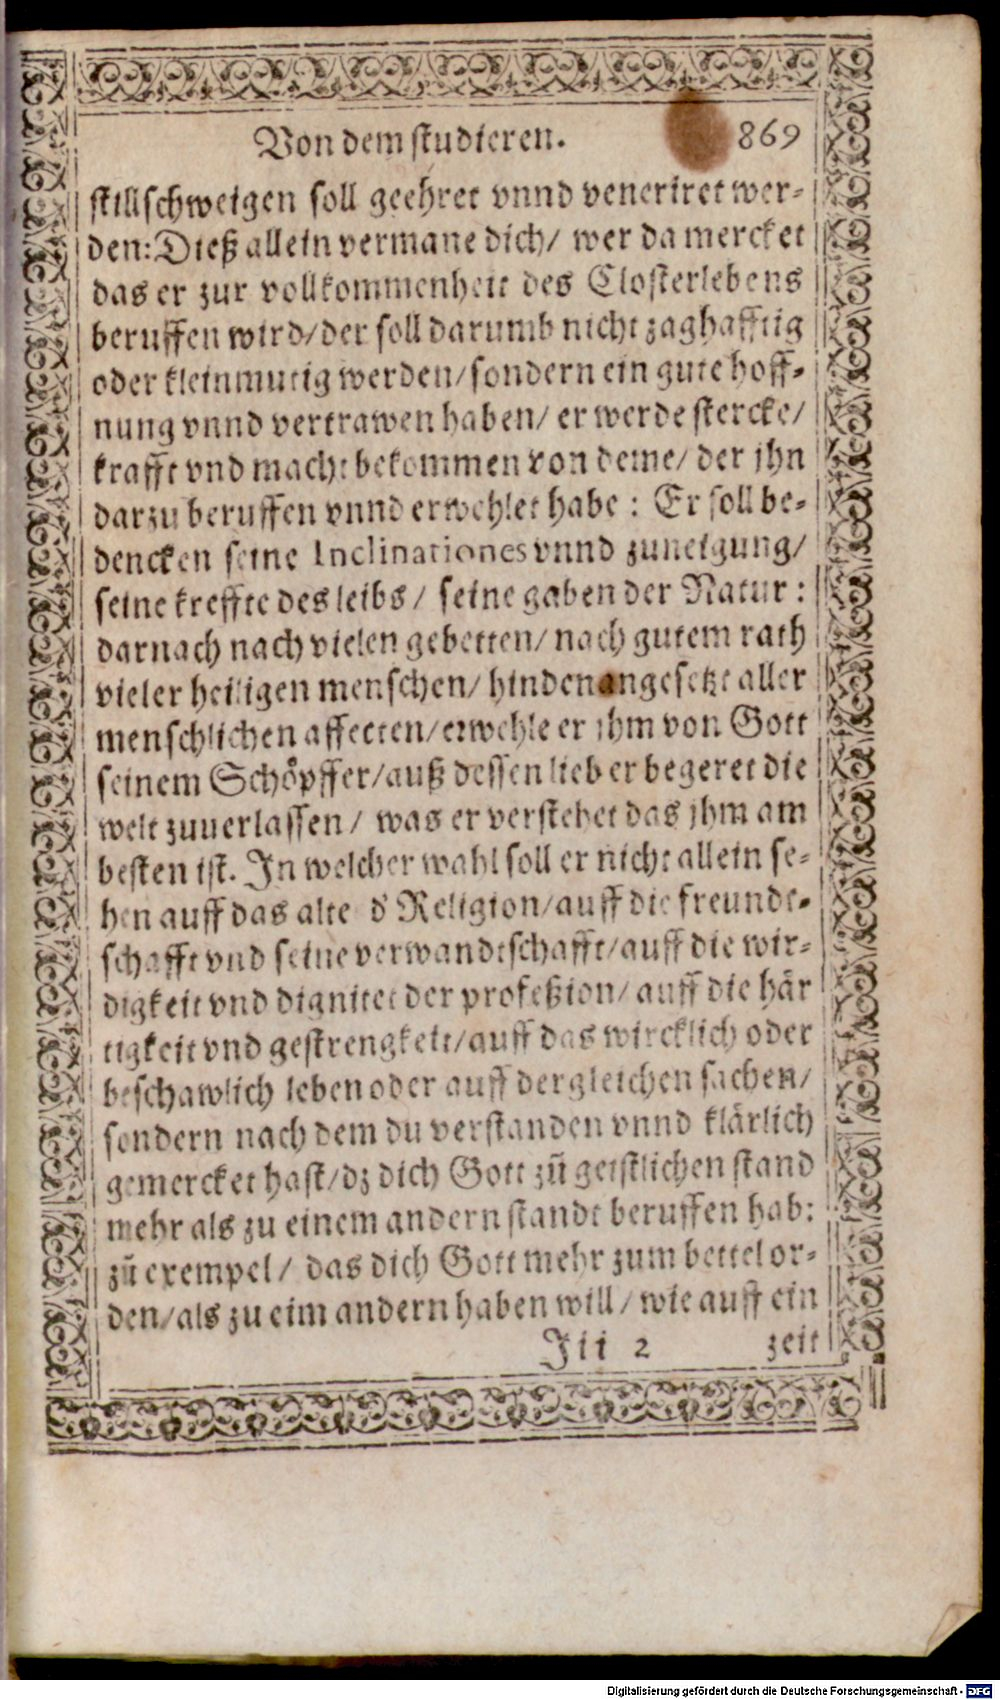 Von dem studieren. 869
stillschweigen soll geehret vnnd veneriret wer-
den: Dieß allein vermane dich/ wer da mercket
das er zur vollkommenheit des Closterlebens
beruffen wird/ der soll darumb nicht zaghafftig
oder kleinmutig werden/ sondern ein gute hoff-
nung vnnd vertrawen haben/ er werde stercke/
krafft vnd macht bekommen von deme/ der jhn
darzu beruffen vnnd erwehlet habe: Er soll be-
dencken seine Inclinationes vnnd zuneigung/
seine kreffte des leibs/ seine gaben der Natur:
darnach nach vielen gebetten/ nach gutem rath
vieler heiligen menschen/ hindenangesetzt aller
menschlichen affecten/ erwehle er jhm von Gott
seinem Schöpffer/ auß dessen lieb er begeret die
welt zuuerlassen/ was er verstehet das jhm am
besten ist. In welcher wahl soll er nicht allein se-
hen auff das alte d' Religion/ auff die freundt-
schafft vnd seine verwandtschafft/ auff die wir-
digkeit vnd dignitet der profeßion/ auff die här
tigkeit vnd gestrengkeit/ auff das wircklich oder
beschawlich leben oder auff dergleichen sachen/
sondern nach dem du verstanden vnnd klärlich
gemercket hast/ dz dich Gott zū geistlichen stand
mehr als zu einem andern standt beruffen hab:
zū exempel/ das dich Gott mehr zum bettel or-
den/ als zu eim andern haben will/ wie auff ein
Iii 2 zeit
Digitalisierung gefördert durch die Deutsche Forschungsgemeinschaft - DFG